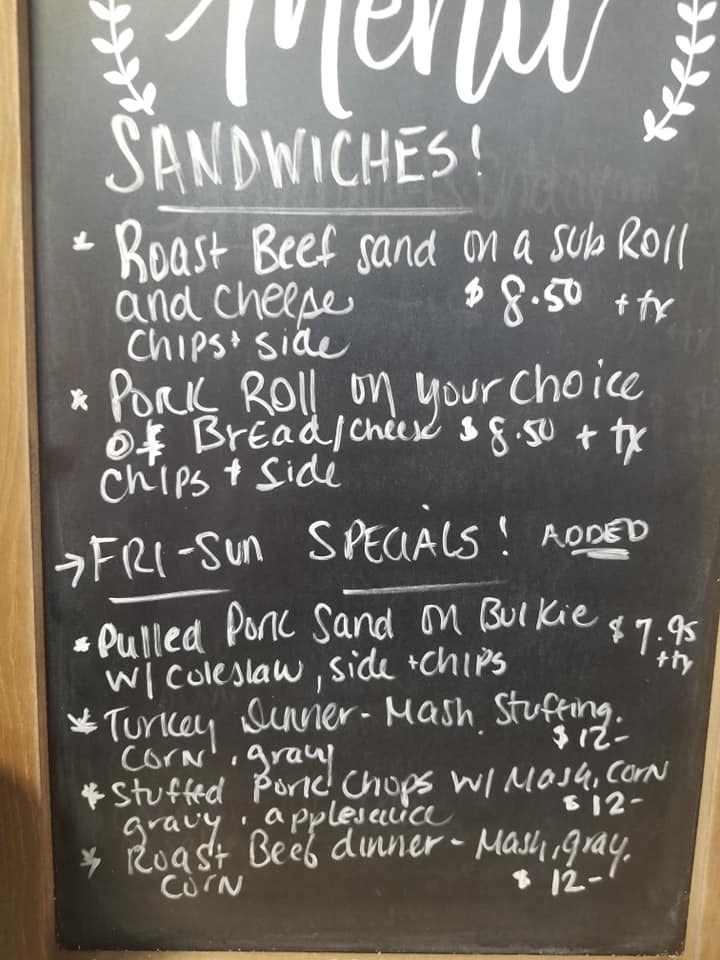 Menu
SANDWICHES!
* Roast Beef sand on a sub Roll
and cheese $8.50 + tx
chips + side
* PORK ROLL on your choice
of BREAD/cheese $8.50 + tx
chips + side
→ FRI-SUN SPECIALS! ADDED
* Pulled Pork Sand on Bulkie $7.95
w/ coleslaw, side + chips + tx
* Turkey Dinner - Mash, Stuffing.
CORN, gravy $12-
* Stuffed Pork Chops w/ Mash, CORN
gravy, applesauce $12-
* Roast Beef dinner - Mash, gray.
CORN $12-